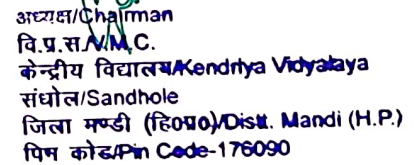 अध्यक्ष/Chairman
वि.प्र.स./V.M.C.
केन्द्रीय विद्यालय/Kendriya Vidyalaya
संधोल/Sandhole
जिला मण्डी (हि०प्र०)/Distt. Mandi (H.P.)
पिन कोड/Pin Code-176090